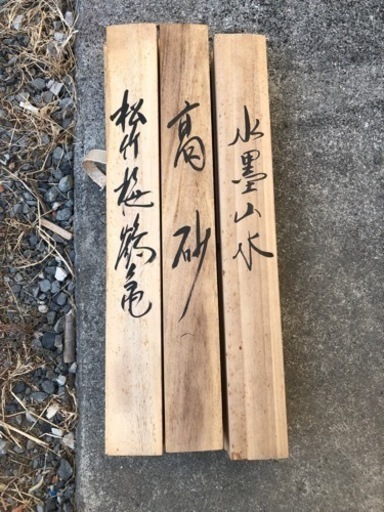 松竹梅鶴亀
高砂
水墨山水